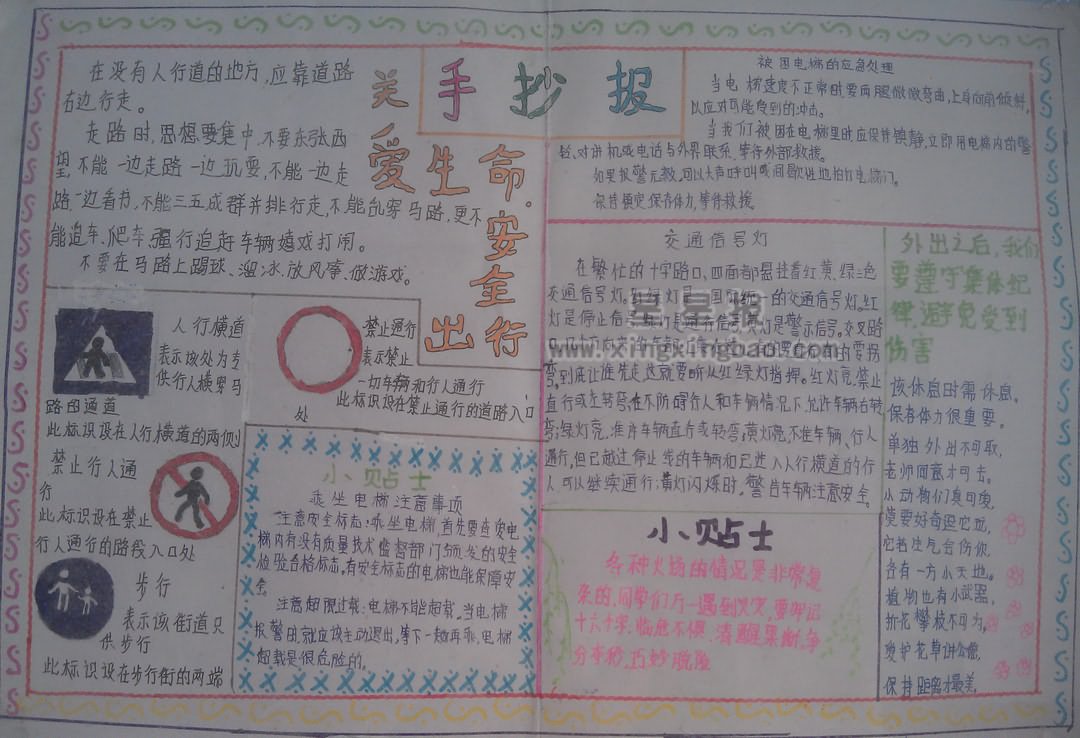 手抄报
关爱生命,安全出行
在没有人行道的地方,应靠道路
右边行走。
走路时,思想要集中,不要东张西
望,不能一边走路一边玩耍,不能一边走
路一边看书,不能三五成群并排行走,不能乱穿马路,更不
能追车、爬车、强行追赶车辆嬉戏打闹。
不要在马路上踢球、溜冰、放风筝、做游戏。
人行横道
表示该处为专
供行人横穿马
路的通道
此标识设在人行横道的两侧
禁止通行
表示禁止
一切车辆和行人通行
此标识设在禁止通行的道路入口
处
禁止行人通
行
此标识设在禁止
行人通行的路段入口处
步行
表示该街道只
供步行
此标识设在步行街的两端
小贴士
乘坐电梯注意事项
注意安全标志:乘坐电梯,首先要查发电
梯内有没有质量技术监督部门颁发的安全
检验合格标志。有安全标志的电梯也能保障安
全
注意超限过载:电梯不能超载。当电梯
报警时就应该主动退出,等下一趟再乘。电梯
超载是很危险的。
被困电梯的应急处理
当电梯速度不正常时要两腿微微弯曲,上身向前倾斜,
以应对可能受到的冲击。
当我们被困在电梯里时应保持镇静,立即用电梯内的警
铃、对讲机或电话与外界联系,等待外部救援。
如果报警无效,可以大声呼叫或间歇性地拍打电梯门。
保持镇定,保存体力,等待救援。
交通信号灯
在繁忙的十字路口,四面都悬挂着红、黄、绿三色
交通信号灯。红绿灯是国际统一的交通信号灯。红
灯是停止信号,绿灯是通行信号,黄灯是警示信号。交叉路
口,几个方向来的车都
弯,到底让谁先走这就要听从红绿灯指挥。红灯亮,禁止
直行或左转弯,在不防碍行人和车辆情况下,允许车辆右转
弯;绿灯亮,准许车辆直行或转弯;黄灯亮,不准车辆、行人
通行,但已越过停止线的车辆和已进入人行横道的行
人,可以继续通行;黄灯闪烁时,警告车辆注意安全。
小贴士
各种火场的情况是非常复
杂的,同学们万一遇到火灾,要牢记
十六个字:临危不惧、清醒果断、争
分夺秒、巧妙脱险
外出之后,我们
要遵守集体纪
律,避免受到
伤害
该休息时需休息,
保存体力很重要。
单独外出不可取,
老师同意才可去。
小动物们真可爱,
莫要好奇逗它玩,
它若生气会伤你,
各有一方小天地。
植物也有小武器,
折花攀枝不可为,
爱护花草讲公德,
保持距离才最美。
星星报
www.xingxingbao.com